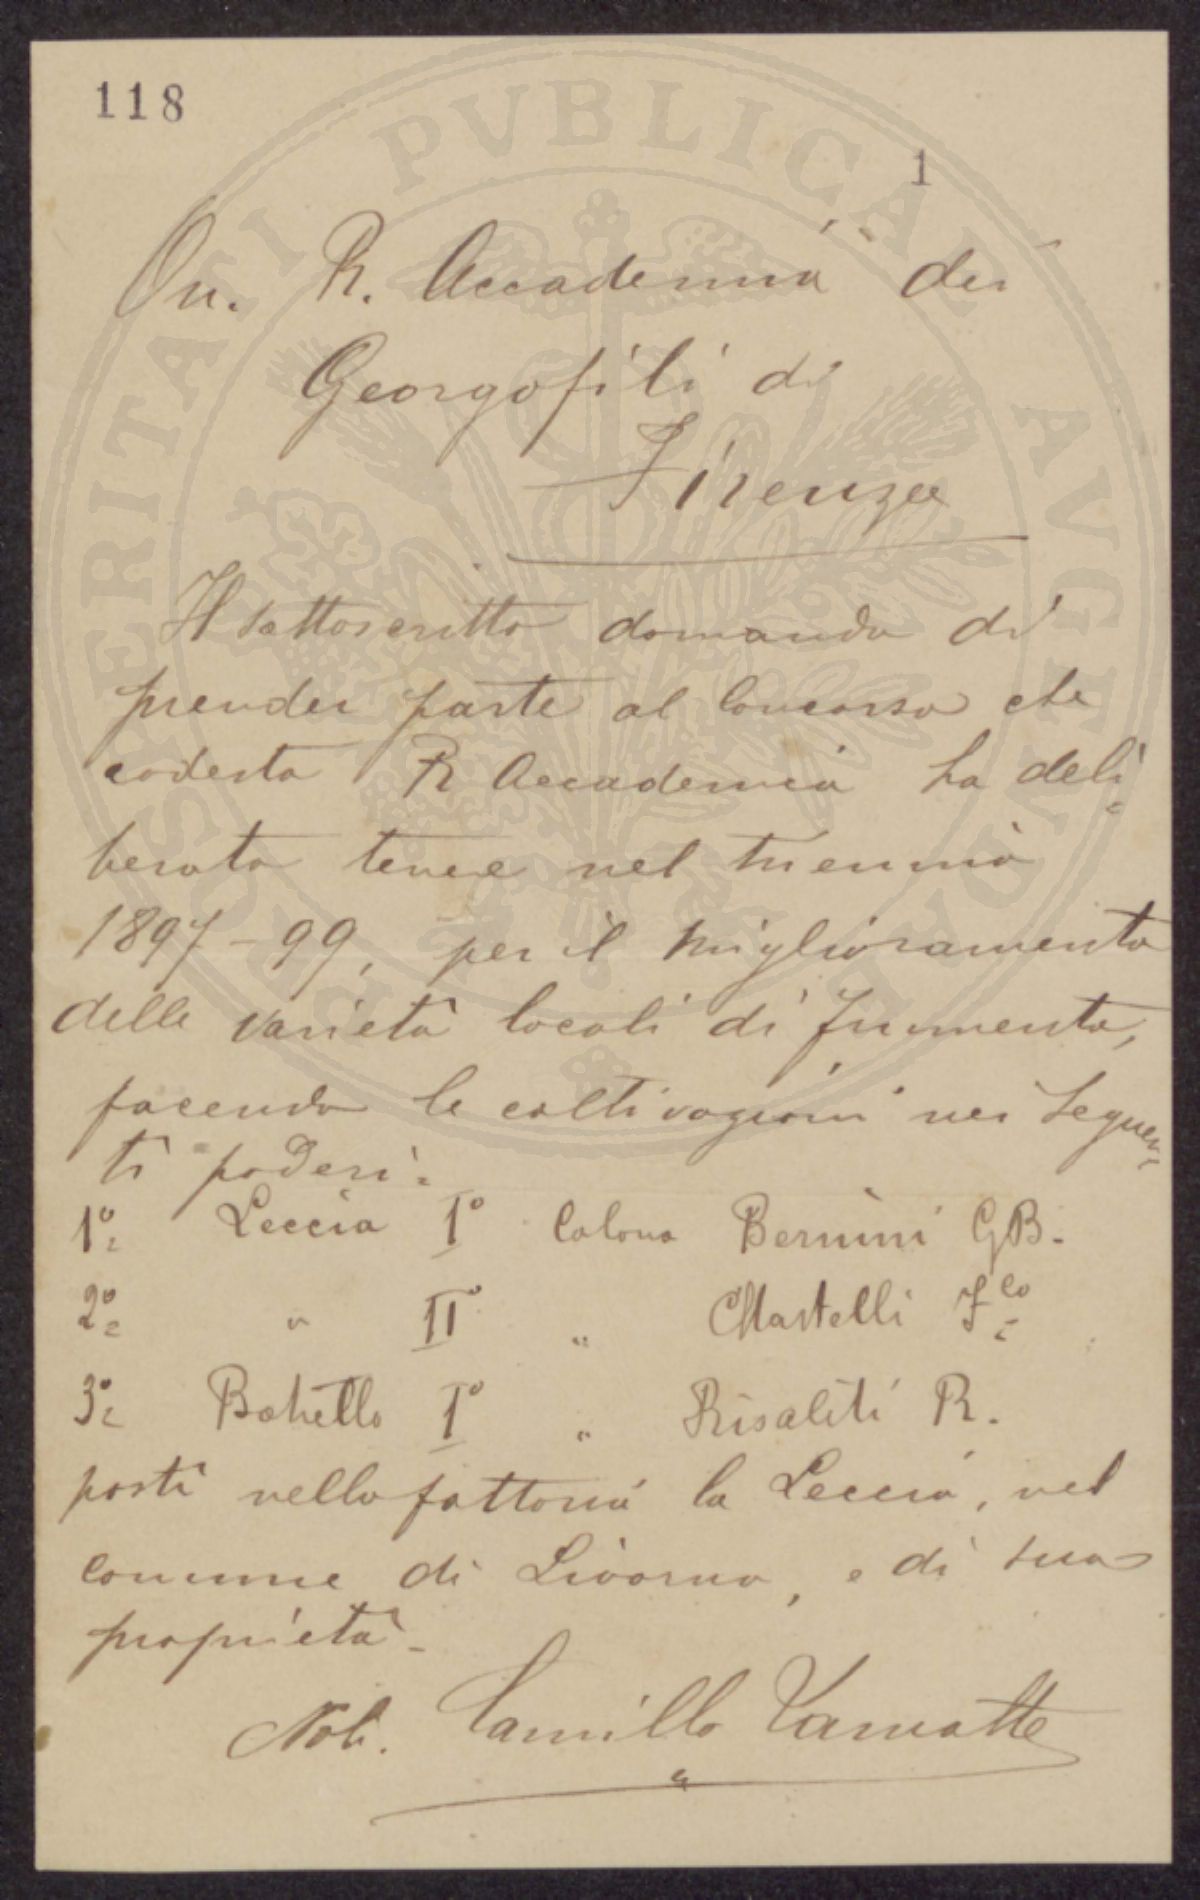 118
1
On. R. Accademia dei
Georgofili di
Firenze
Il sottoscritto domanda di
prender parte al Concorso che
codesta R Accademia ha deli=
berato tenere nel triennio
1897-99, per il miglioramento
delle varietà locali di frumento,
facendo le coltivazioni nei seguen=
ti poderi:
1º= Leccia Iº Colono Bernini GB.
2º= " IIº " Mastelli F.co
3º= Iº " Risaliti R.
posti nella fattoria la Leccia, nel
comune di Livorno, e di sua
proprietà.
Nob. Camillo
PROSPERITATI PVBLICAE AVGENDAE